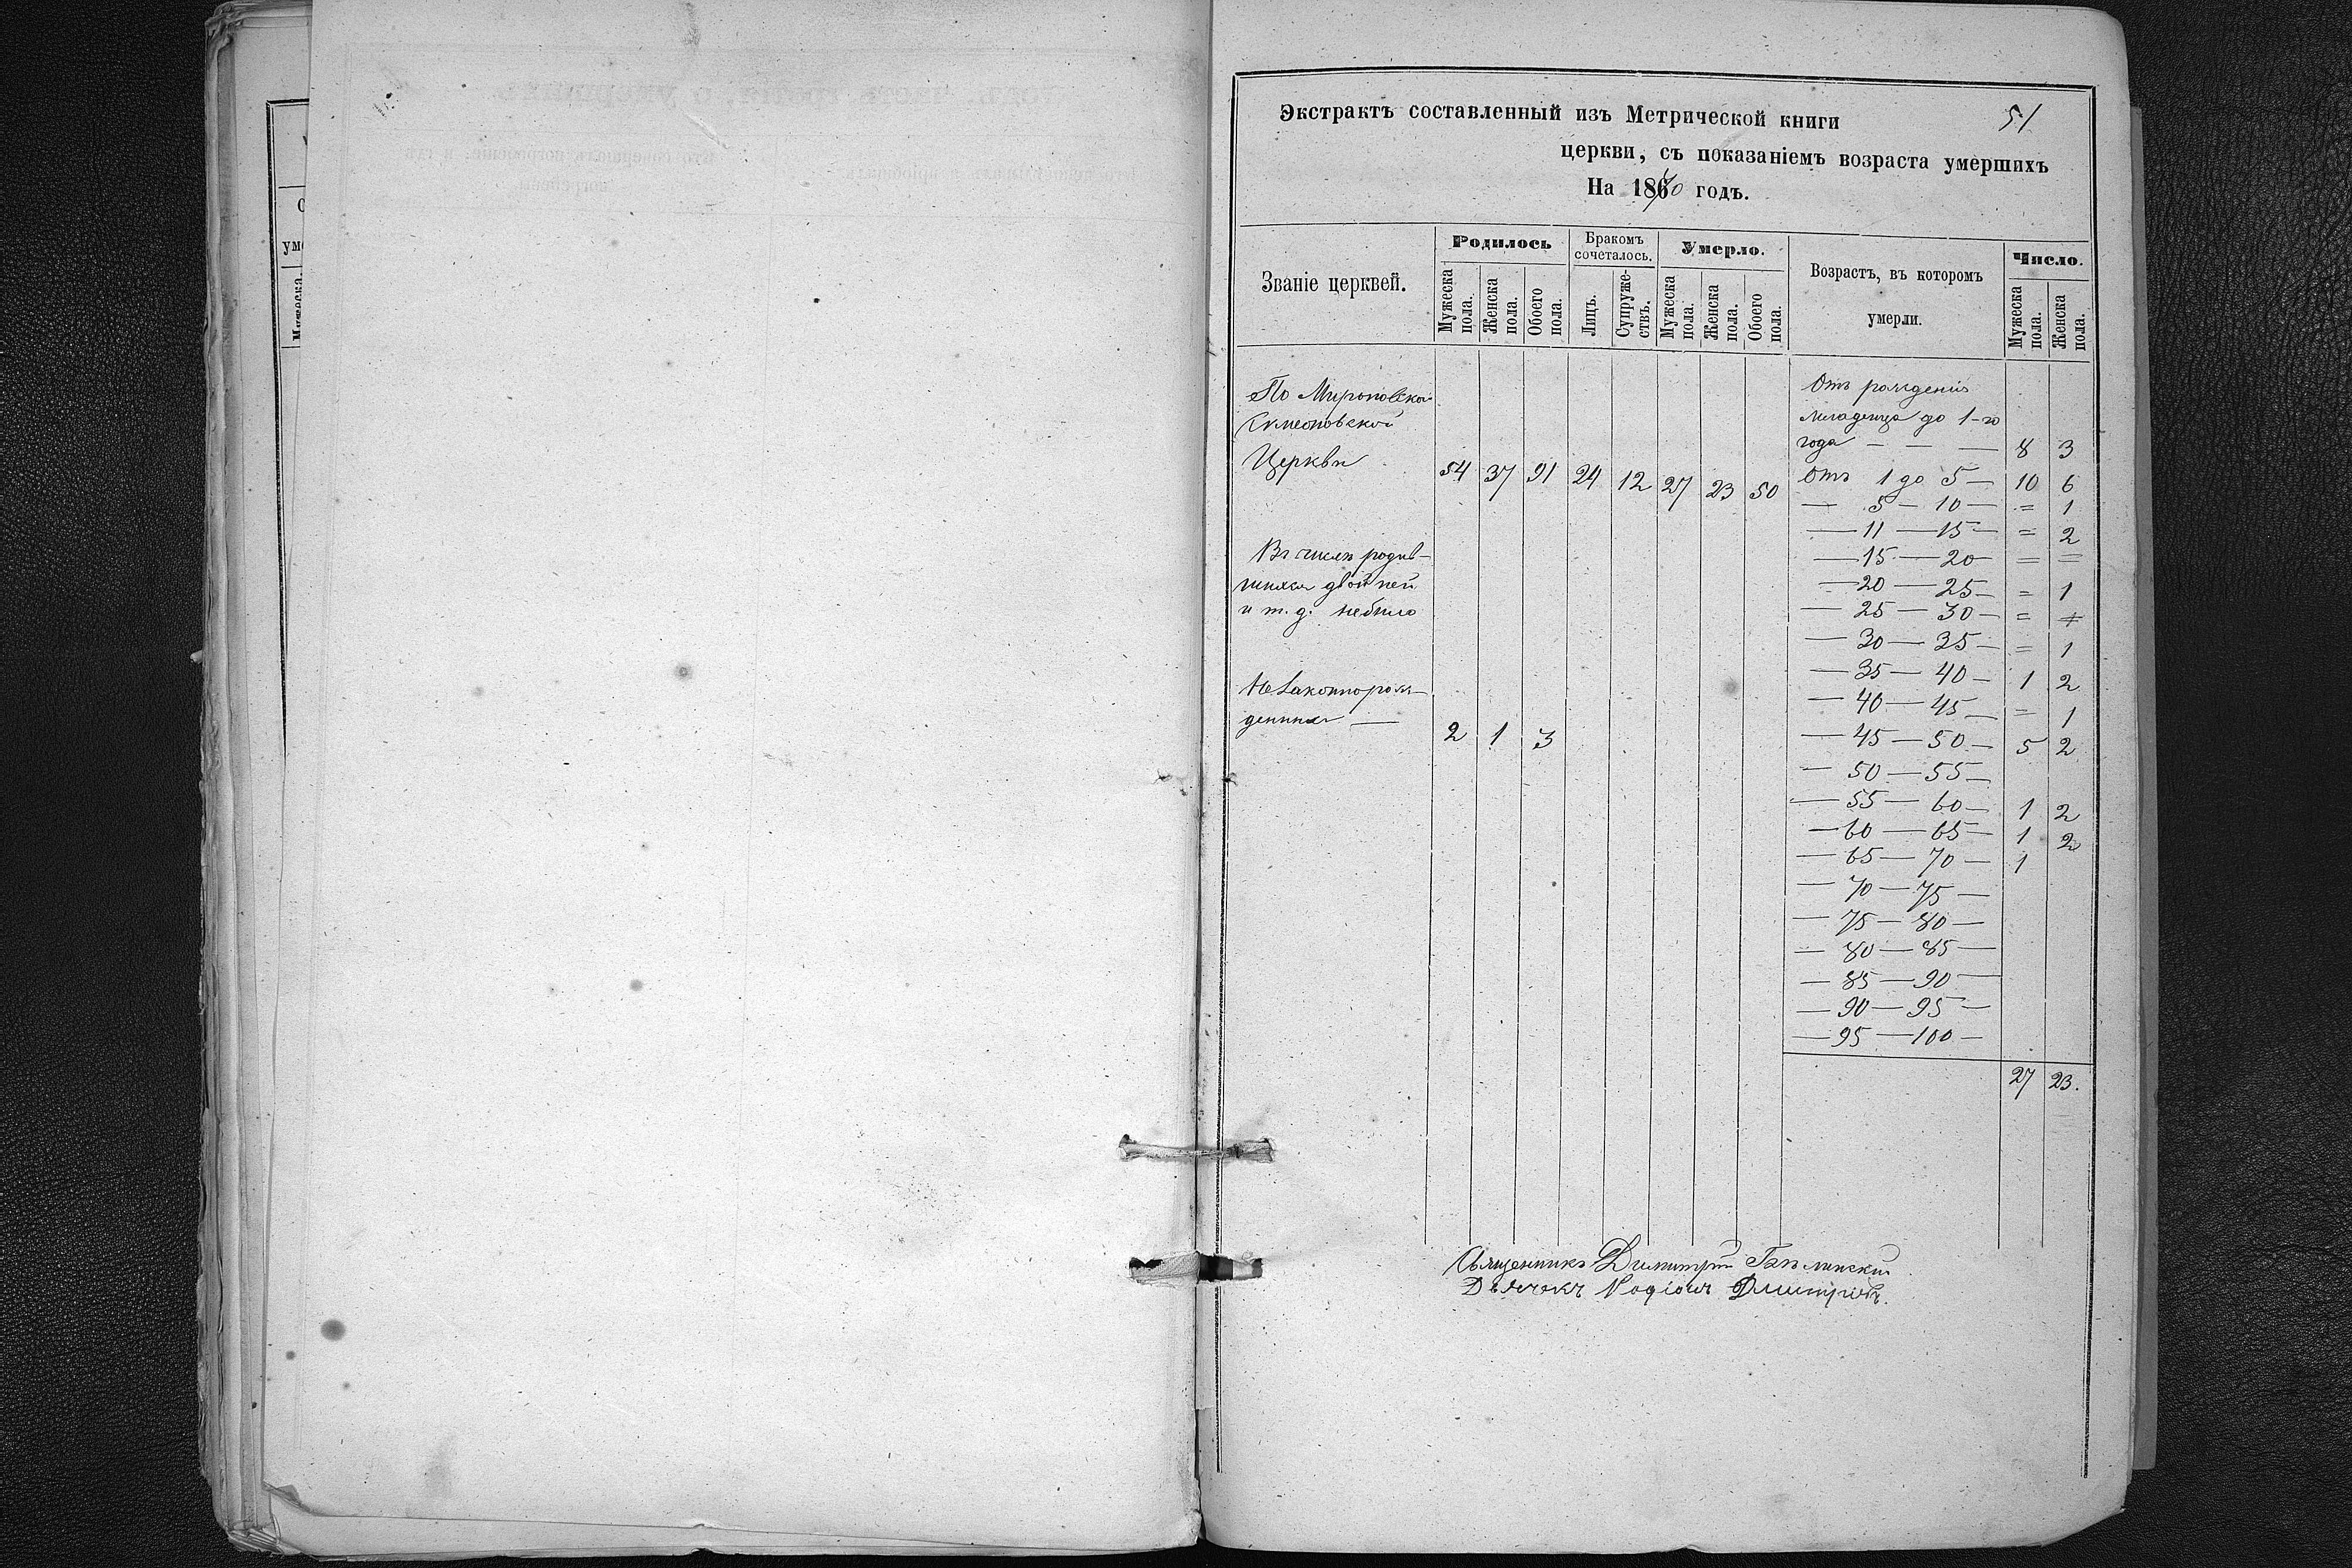 51
Экстрактъ составленный изъ Метрической книги
церкви, съ показаніемъ возраста умершихъ
На 1870 годъ.
Званіе церквей.
Родилось
Бракомъ сочеталось.
Умерло.
Возрастъ, въ которомъ умерли.
Число.
Мужеска пола.
Женска пола.
Обоего пола.
Лицъ.
Супружествъ.
Мужеска пола.
Женска пола.
Обоего пола.
Мужеска пола.
Женска пола.
По Мироновской
Симеоновской
Церкви 54 37 91 24 12 27 23 50
Въ числѣ родив-
шихся двойней
и т. д. небыло
Незаконнорож-
денныхъ — 2 1 3
Отъ рожденія
младенца до 1-го
года — — — 8 3
Отъ 1 до 5 — 10 6
— 5 — 10 — = 1
— 11 — 15 — = 2
— 15 — 20 — = =
— 20 — 25 — = 1
— 25 — 30 — =
— 30 — 35 — = 1
— 35 — 40 — 1 2
— 40 — 45 — = 1
— 45 — 50 — 5 2
— 50 — 55 —
— 55 — 60 — 1 2
— 60 — 65 — 1 2
— 65 — 70 — 1
— 70 — 75 —
— 75 — 80 —
— 80 — 85 —
— 85 — 90 —
— 90 — 95 —
— 95 — 100 —
27 23.
Священникъ Димитрій
Дьячокъ Родіонъ Дмитріевъ.